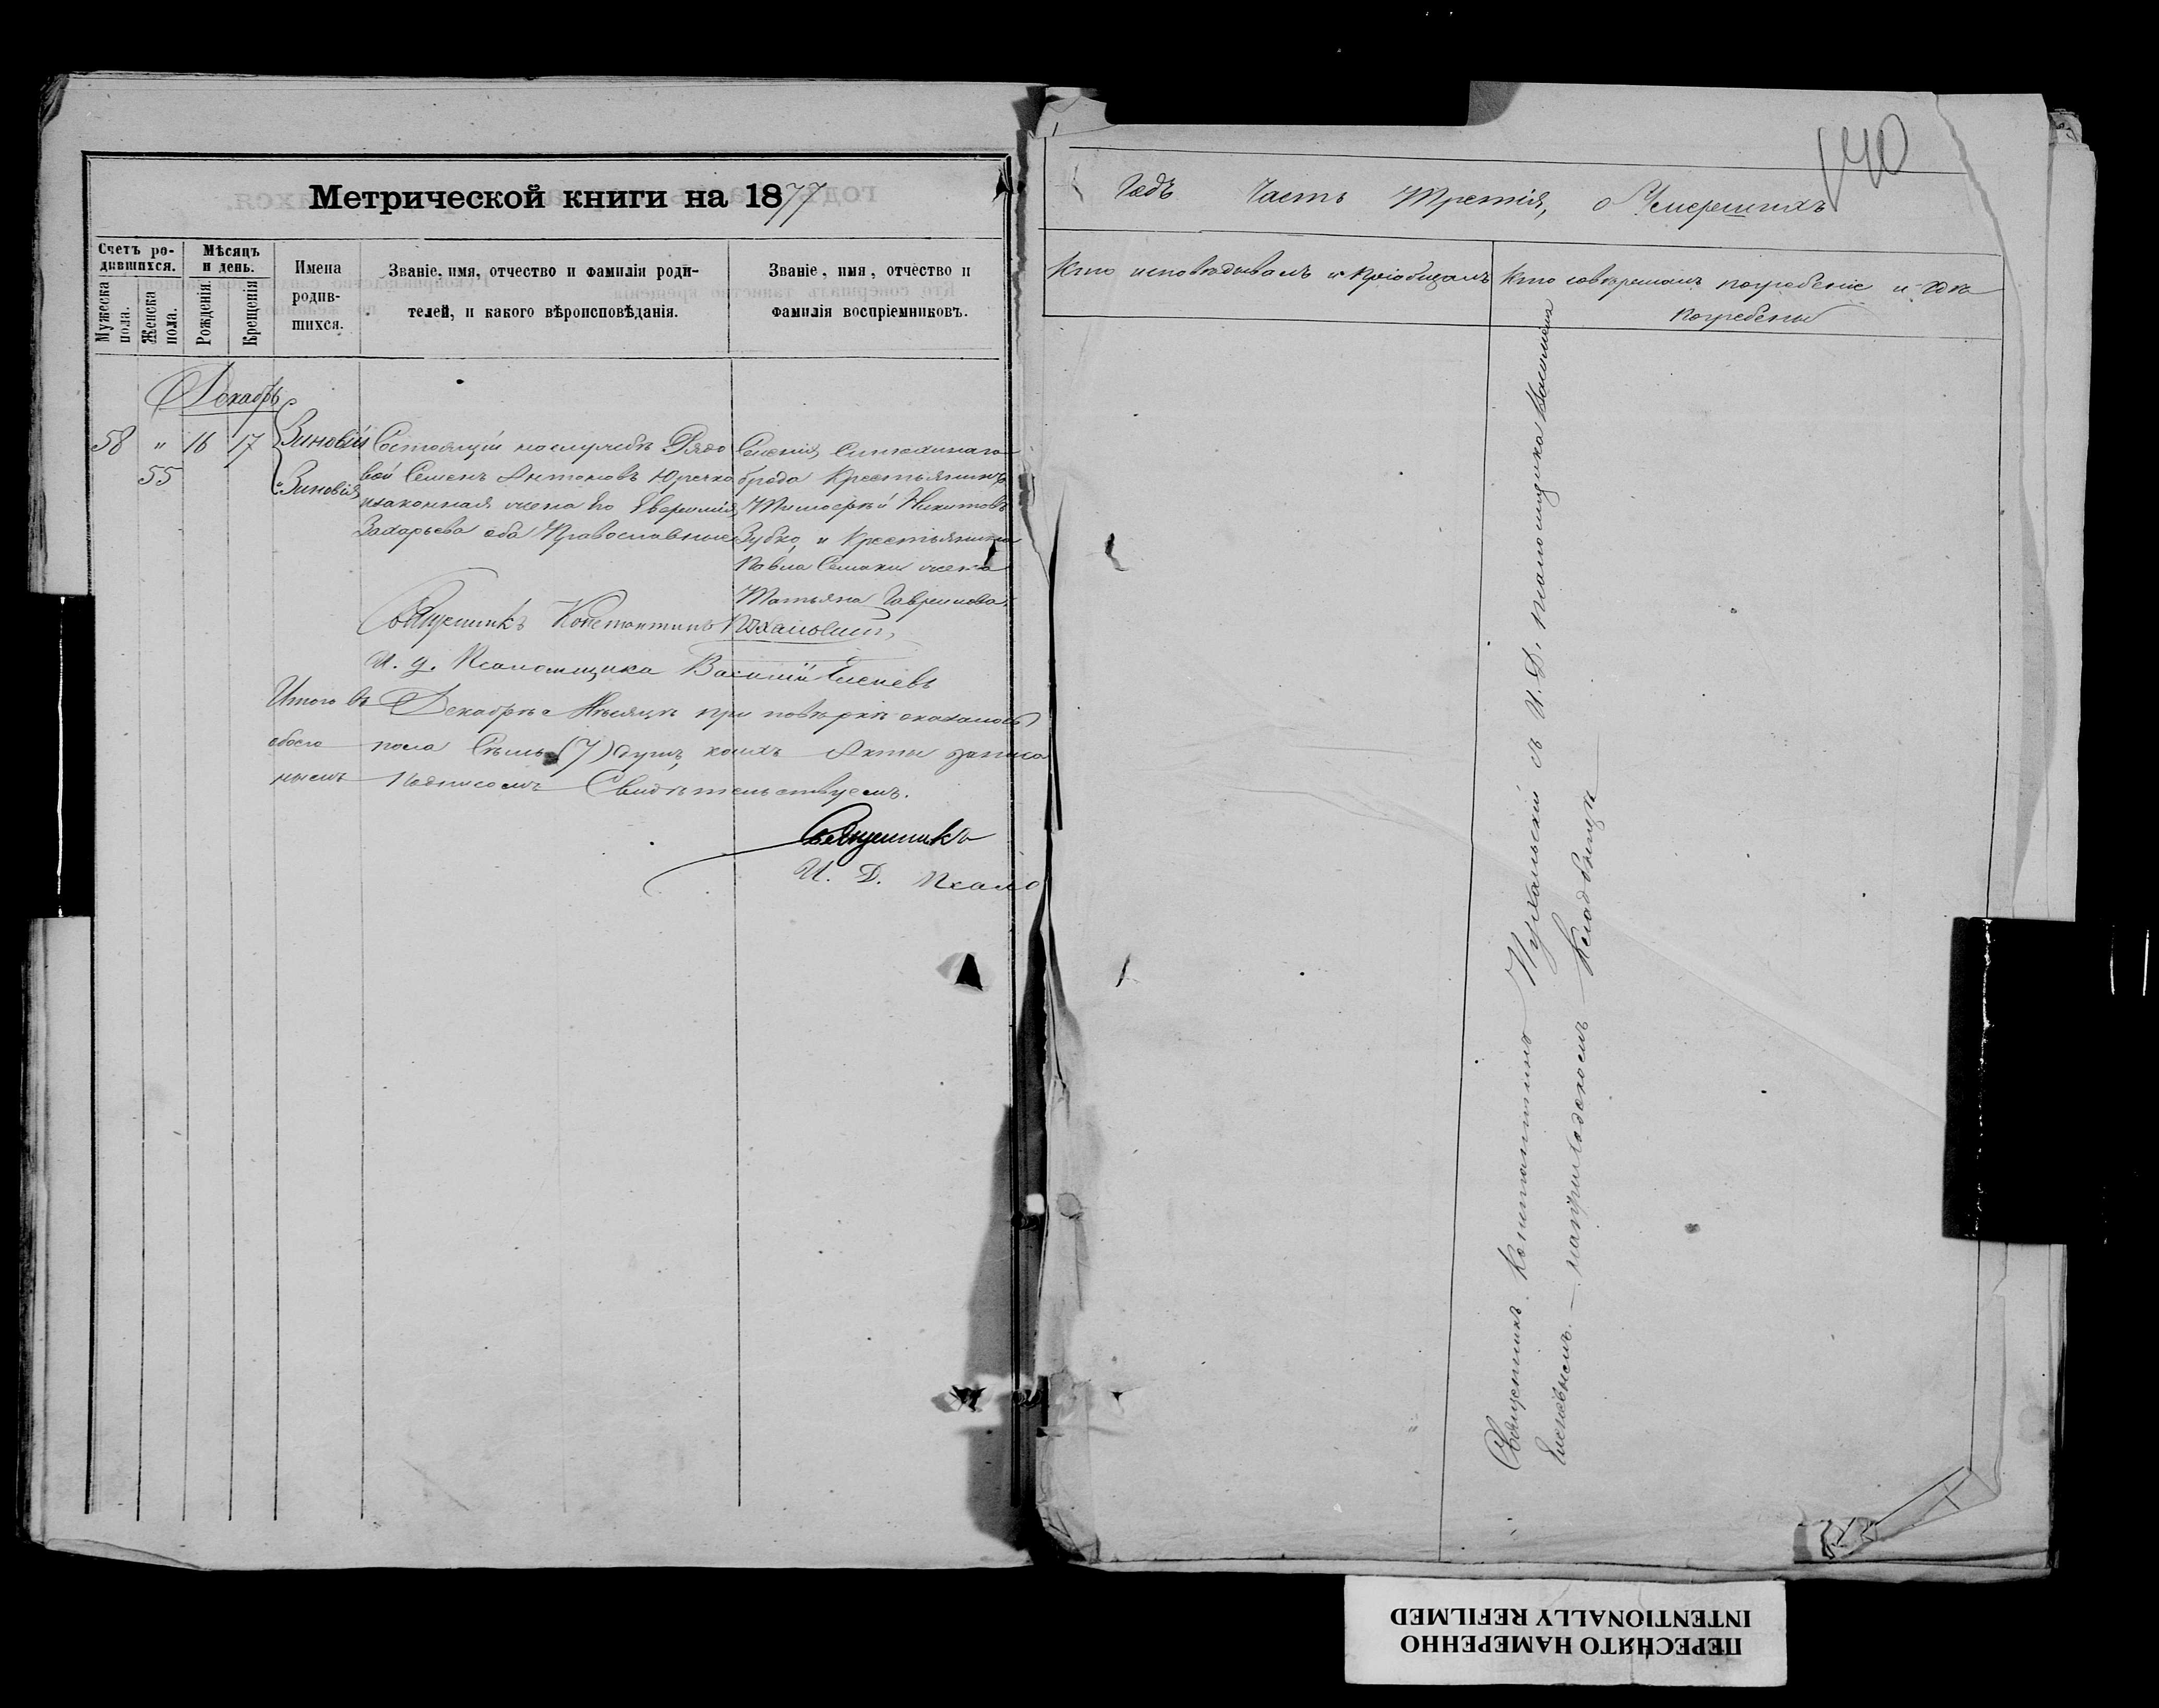 Метрической книги на 1877
Счетъ ро-
дившихся.
Мѣсяцъ
и день.
Мужеска
пола.
Женска
пола.
Рожденія.
Крещенія
Имена
родив-
шихся.
Званіе, имя, отчество и фамилія роди-
телей, и какого вѣроисповѣданія.
Званіе, имя, отчество и
фамилія воспріемниковъ.
Декабрь
58 " 16 17 Зиновій
55 Зиновія
Состоящій на службѣ Рядо
вой Семенъ Антоновъ Юречко
и законная жена его
Захарьева оба Православные
Селенія Синюхинаго
брода Крестьянинъ
Тимофей Никитовъ
Зубко, и Крестьянина
Павла жена
Татьяна Гаврилова
Священникъ Константинъ
И. д. Псаломщика Василій Елепевъ
Итого въ Декабрѣ Мѣсяцѣ при повѣркѣ оказалось
обоего пола Семь (7) душъ, коихъ Акты записа
нысмъ Подписомъ Свидѣтельствуемъ.
Священникъ
И. Д. Псало
140
Годъ Часть Третія, о Умершихъ
Кто исповѣдывалъ и пріобщалъ
Кто совершалъ погребеніе и гдѣ
погребены
Священникъ Константинъ съ И. Д. псаломщика Василіемъ
на приходскомъ Кладбищѣ
ПЕРЕСНЯТО НАМЕРЕННО
INTENTIONALLY REFILMED